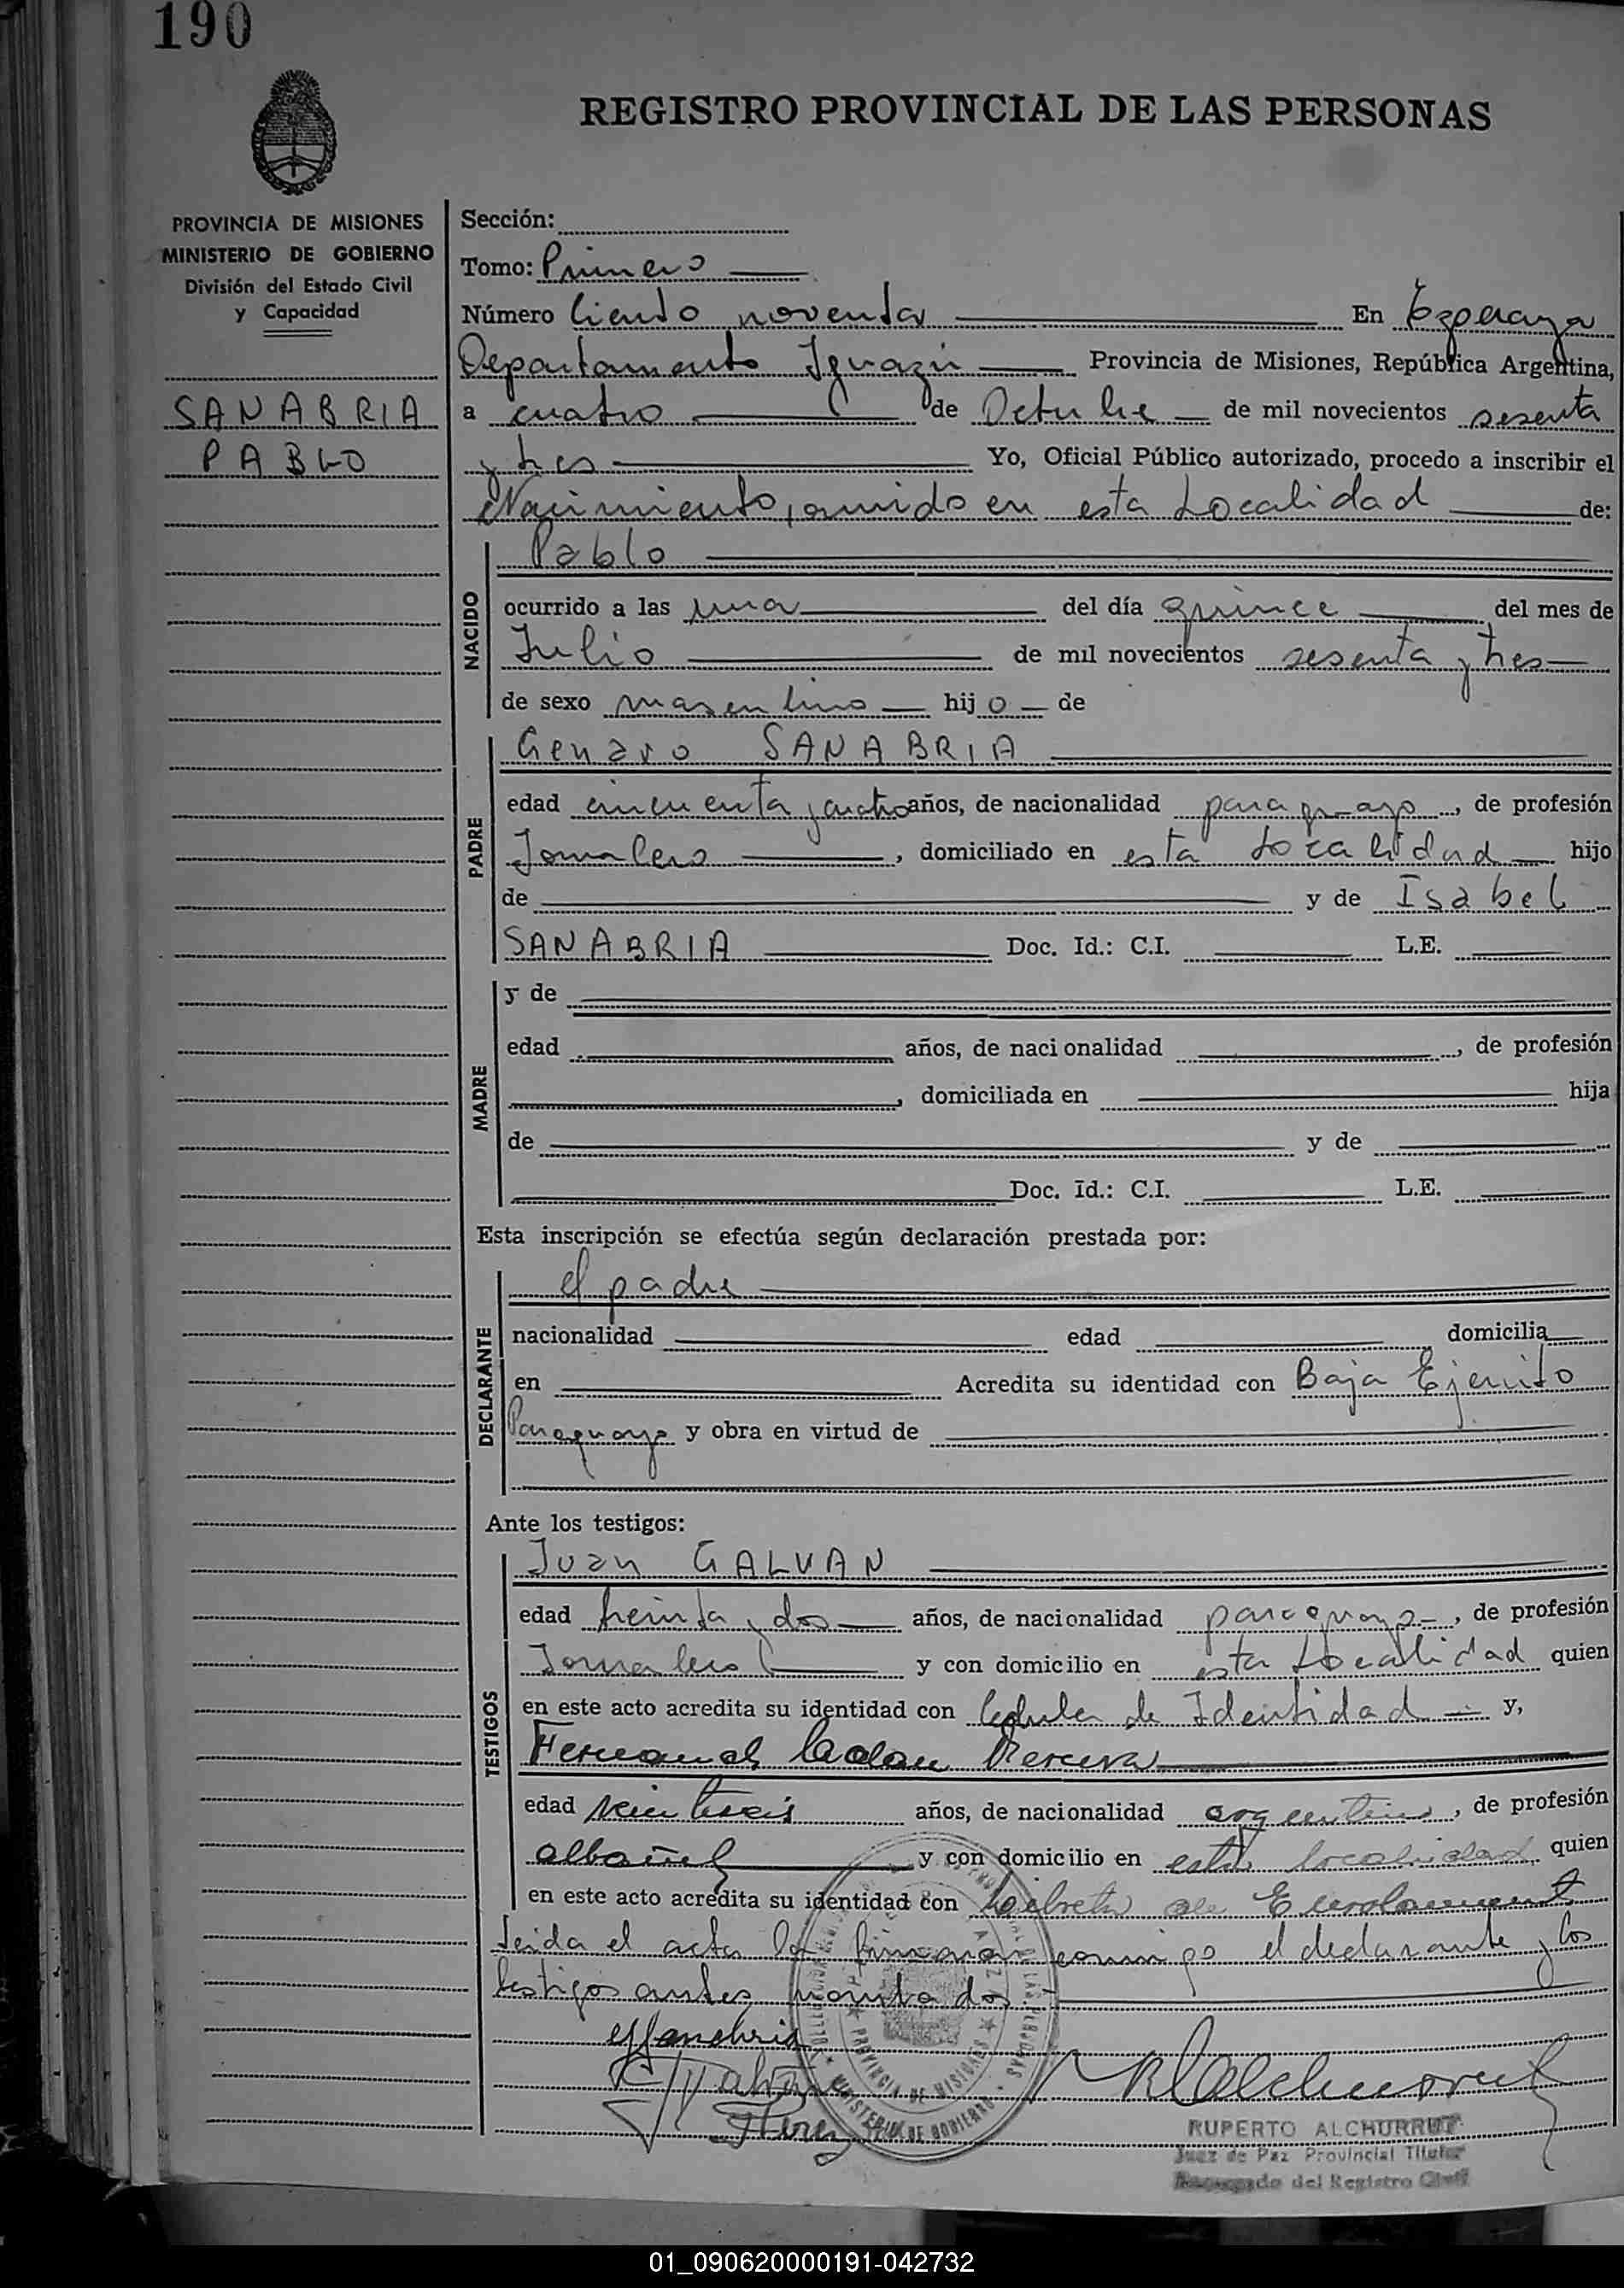 190
REGISTRO PROVINCIAL DE LAS PERSONAS
PROVINCIA DE MISIONES
MINISTERIO DE GOBIERNO
División del Estado Civil
y Capacidad
SANABRIA
PABLO
Sección:
Tomo: Primero
Número Ciento noventa En Esperanza
Departamento Iguazú Provincia de Misiones, República Argentina,
a cuatro de Octubre de mil novecientos sesenta
y tres Yo, Oficial Público autorizado, procedo a inscribir el
Nacimiento, ocurrido en esta Localidad de:
NACIDO
Pablo
ocurrido a las una del día quince del mes de
Julio de mil novecientos sesenta y tres
de sexo masculino hijo de
PADRE
Genaro SANABRIA
edad cincuenta y cuatro años, de nacionalidad paraguayo, de profesión
Jornalero, domiciliado en esta Localidad hijo
de y de Isabel
SANABRIA Doc. Id.: C.I. L.E.
MADRE
y de
edad años, de nacionalidad , de profesión
, domiciliada en hija
de y de
Doc. Id.: C.I. L.E.
Esta inscripción se efectúa según declaración prestada por:
DECLARANTE
el padre
nacionalidad edad domicilia
en Acredita su identidad con Baja Ejercito
Paraguayo y obra en virtud de
Ante los testigos:
TESTIGOS
Juan GALVAN
edad treinta y dos años, de nacionalidad paraguayo, de profesión
Jornalero y con domicilio en esta Localidad quien
en este acto acredita su identidad con Cedula de Identidad y,
edad años, de nacionalidad argentino, de profesión
albañil y con domicilio en esta localidad quien
en este acto acredita su identidad con Libreta de Enrolamiento
Leida el acta la firman conmigo el declarante y los
testigos antes nombrados
PROVINCIA DE MISIONES
MINISTERIO DE GOBIERNO
RUPERTO ALCHURRUT
Juez de Paz Provincial Titular
Encargado del Registro Civil
01_090620000191-042732